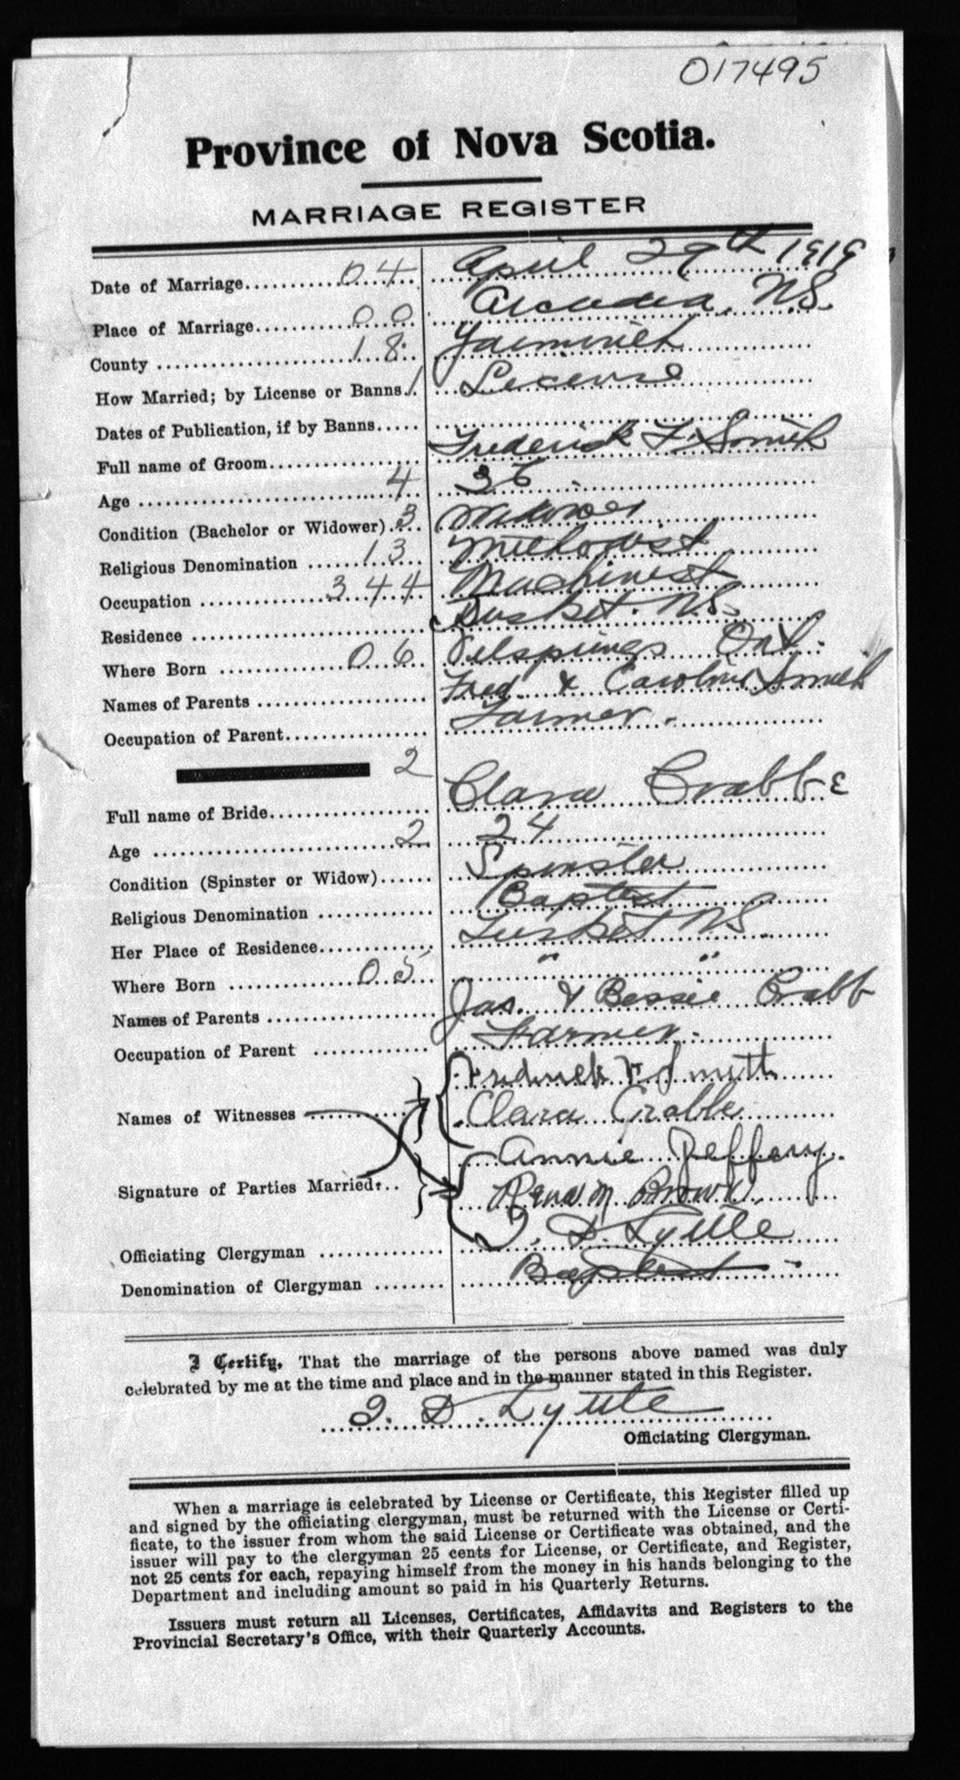 017495
Province of Nova Scotia.
MARRIAGE REGISTER
Date of Marriage 04 April 29th 1919
Place of Marriage 00 Arcadia, N.S.
County 18 Yarmouth
How Married; by License or Banns 1 License
Dates of Publication, if by Banns
Full name of Groom Frederick F. Smith
Age 4 36
Condition (Bachelor or Widower) 3 Widower
Religious Denomination 13 Methodist
Occupation 344 Machinest
Residence Tusket. N.S.
Where Born 06 Oilsprings Ont.
Names of Parents Fred. & Caroline Smith
Occupation of Parent Farmer.
2
Full name of Bride Clara Crabbe
Age 2 24
Condition (Spinster or Widow) Spinster
Religious Denomination Baptist
Her Place of Residence Tusket N.S.
Where Born 05 " "
Names of Parents Jas. & Bessie Crabb
Occupation of Parent Farmer.
Fredrick F Smith
Names of Witnesses Clara Crabbe
Annie Jeffery.
Signature of Parties Married Rena M Brown
Officiating Clergyman D. Lyttle
Denomination of Clergyman Baptist
I Certify, That the marriage of the persons above named was duly
celebrated by me at the time and place and in the manner stated in this Register.
D. Lyttle
Officiating Clergyman.
When a marriage is celebrated by License or Certificate, this Register filled up
and signed by the officiating clergyman, must be returned with the License or Certi-
ficate, to the issuer from whom the said License or Certificate was obtained, and the
issuer will pay to the clergyman 25 cents for License, or Certificate, and Register,
not 25 cents for each, repaying himself from the money in his hands belonging to the
Department and including amount so paid in his Quarterly Returns.
Issuers must return all Licenses, Certificates, Affidavits and Registers to the
Provincial Secretary's Office, with their Quarterly Accounts.